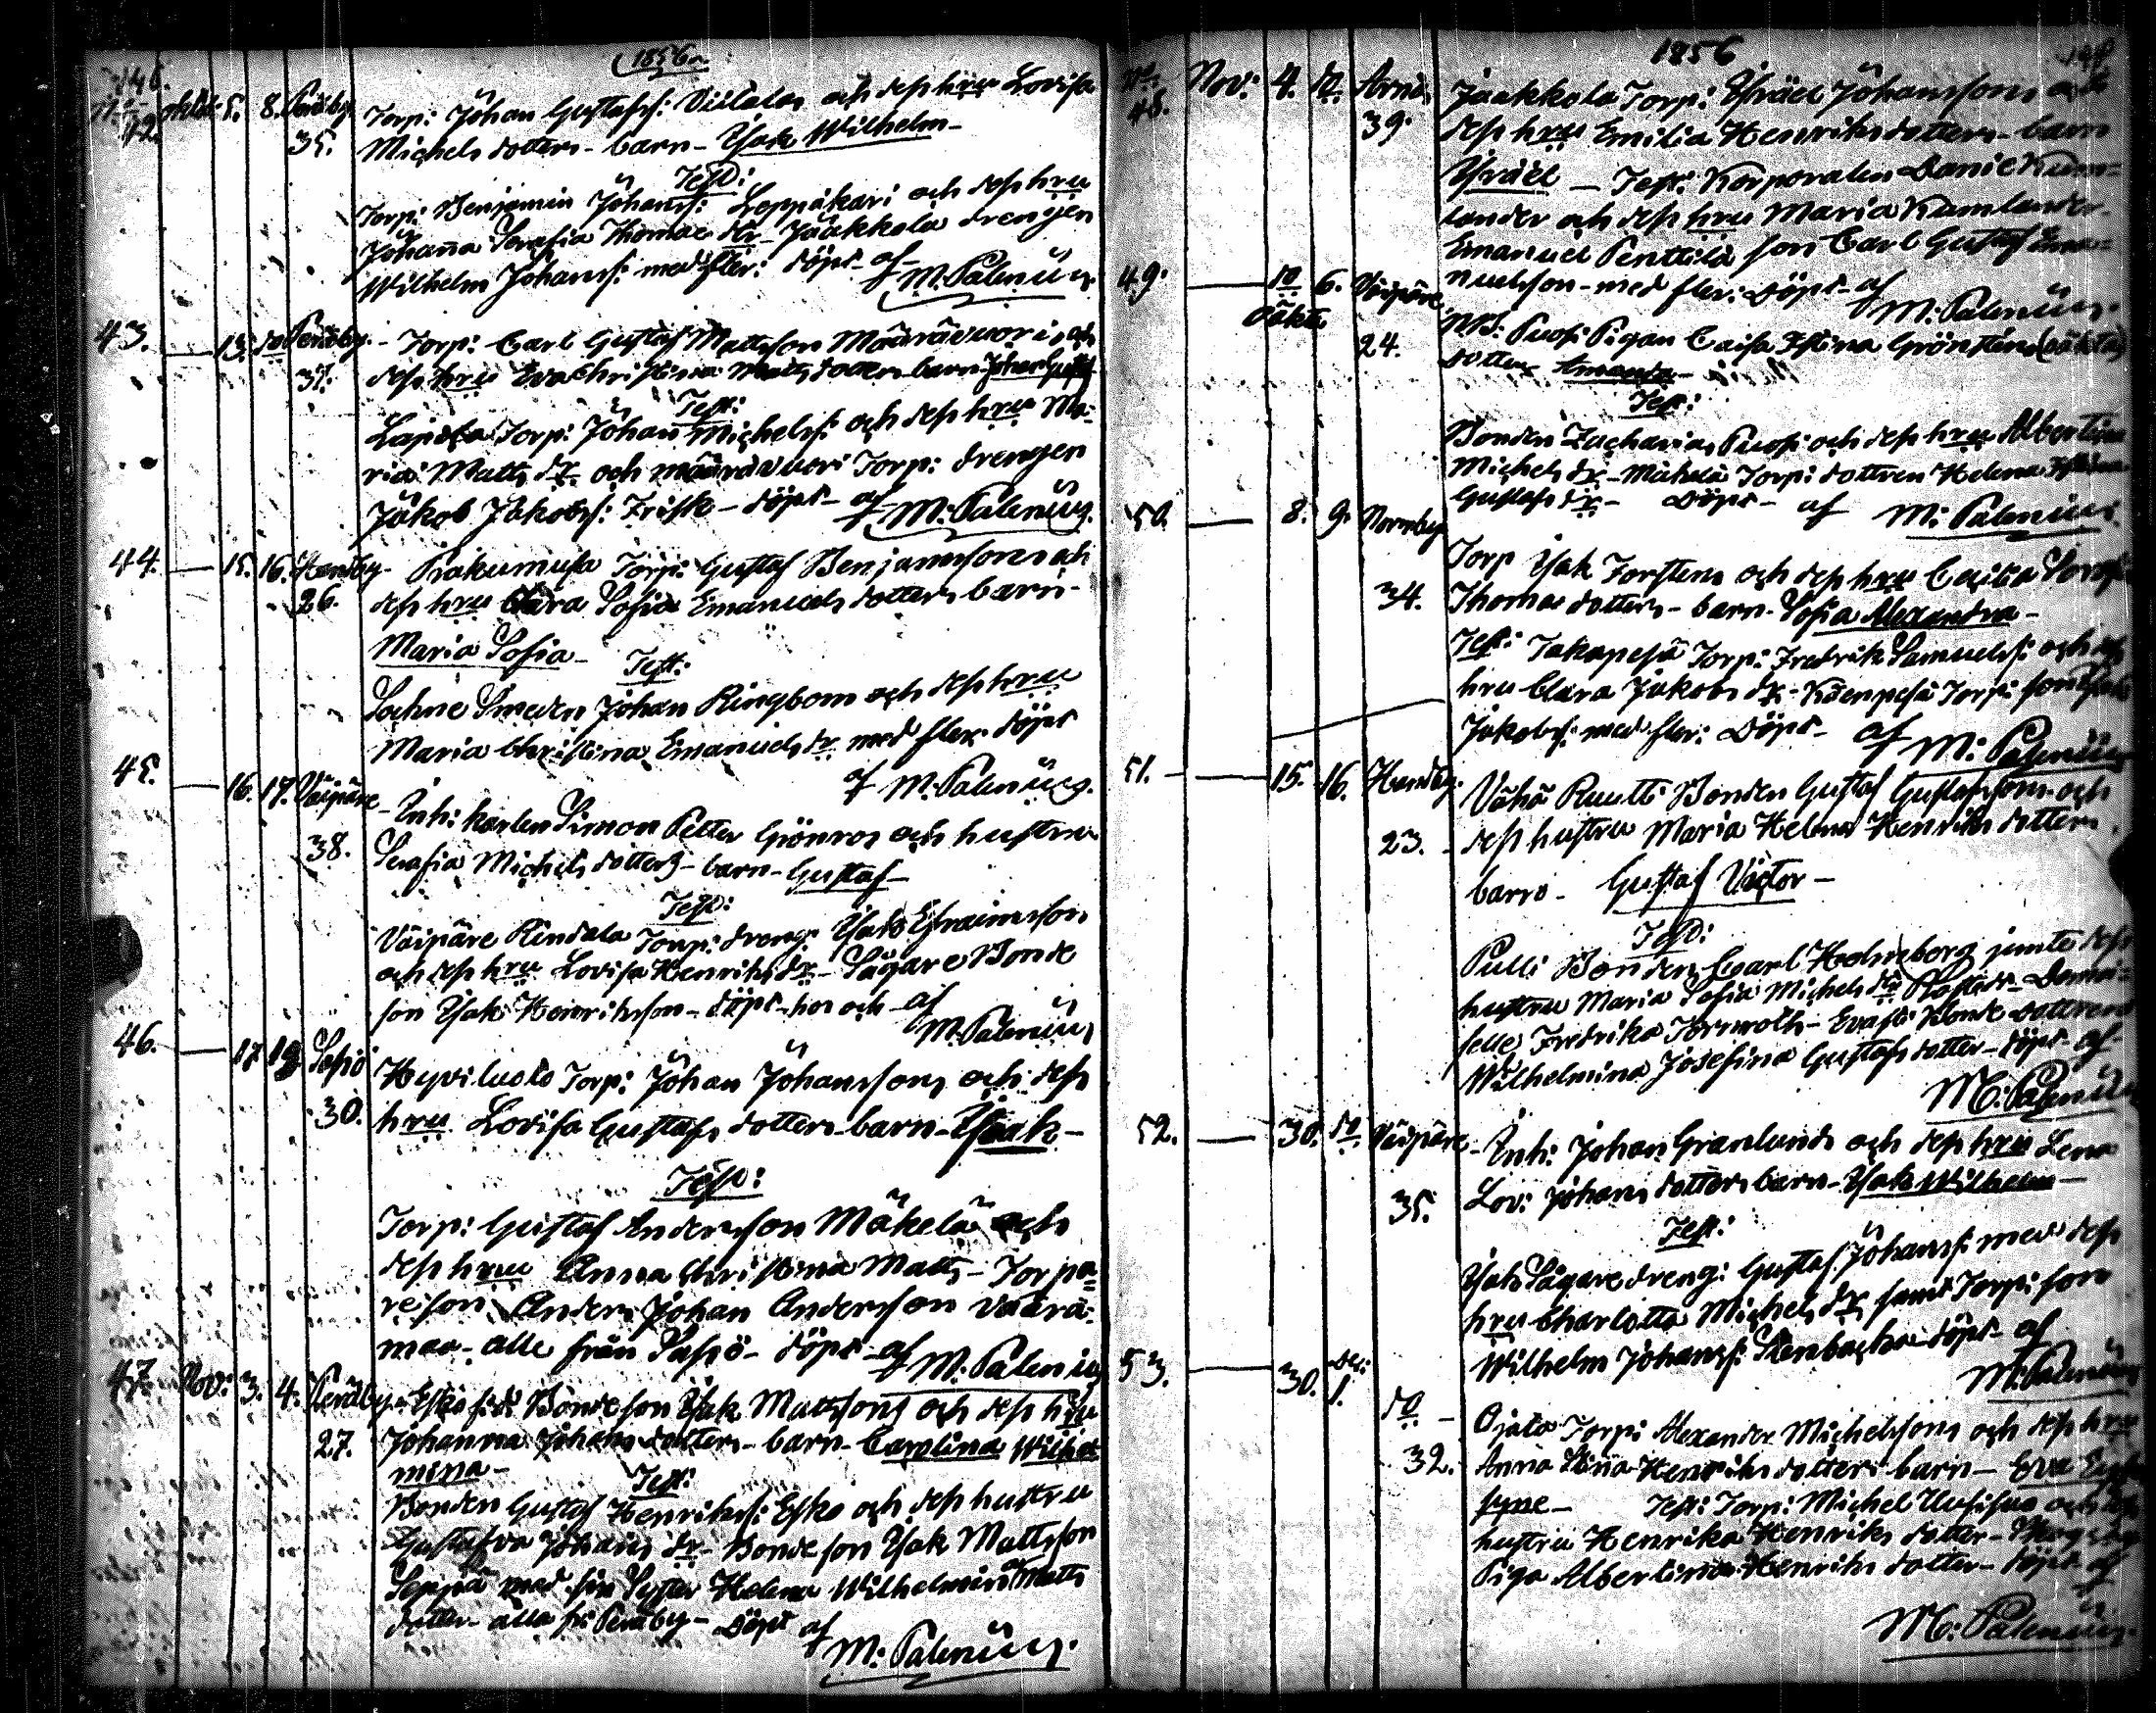 146.
1856
No 42. Oktob. 5. 8. Peräby
35.
Torp: Johan Gustafss: Viilalas och dess hru Lovisa
Michelsdotters - barn - Isak Wilhelm -
Test:
Torp: Benjamin Johanss: Leppäkari och dess hru
Johanna Serafia Thomae dr - Jaakkola drengen
Wilhelm Johanss: med fler: döpt - af
M. Palenius.
43. 13. do Peräby.
37.
Torp: Carl Gustaf Mattsson Määrävuori, och
dess hru Eva Christina Mattsdotters barn Johan Gustaf
Test:
Torp: Johan Michelss: och dess hru Ma-
ria Matts dr. och Määrävuori Torp: drengen
Jakob Jakobss: Frisk - döpt - af M: Palenius.
44. 15. 16. Hemby
26.
Torp: Gustaf Benjaminssons och
dess hru Clara Sofia Emanuelsdotters barn -
Maria Sofia -
Test:
Sockne Smeden Johan Ringbom och dess hru
Maria Christina Emanuels dr. med fler. döpt
af M. Palenius.
45. 16. 17. Väipäre
38.
Inh: karlen Simon Petter Grönros och hustru
Serafia Michelsdotters - barn - Gustaf -
Test:
Väipäre Rindala Torp: dreng: Isak Efraimsson
och dess hru Lovisa Henriks dr - Sägare Bonde
son Isak Henriksson - döpt - af
M. Palenius
46. 17 19 Sassö
30.
Hyviluoto Torp: Johan Johanssons och dess
hru Lovisa Gustafs dotters barn - Isaak -
Test:
Torp: Gustaf Andersson Mäkelä och
dess hru Anna Christina Matts - Torpa-
re son Anders Johan Andersson Vaara-
maa - alle från Sassö - döpt - af M. Palenius
47. Nov: 3. 4. Peräby
27.
Esko Bondeson Isak Mattssons och dess hru
Johanna Johansdotters - barn - Carolina Wilhel-
mina -
Test:
Bonden Gustaf Henrikss: Esko och dess hustru
Gustafva Johans dr - Bondeson Isak Mattsson
Seppä med sin Syster Helena Wilhelmina Matts
dotter - alla fr: Peräby - döpt af
M: Palenius.
1856
No 48. Nov: 4. do Arni
39.
Jaakkola Torp: Israel Johanssons och
dess hru Emilia Henriksdotters - barn
Israel - Test: Korporalen Daniel Kum-
lander och dess hru Maria Kumlander -
Emanuel Penttilä son Carl Gustaf Ema-
nuelsson - med fler: döpt - af
M: Palenius.
49. do 6. Väipäre
oäkta
24.
Pigan Caisa Stina Grönsténs (oäkta)
dotter Amanda -
Test:
Bonden Zacharias och dess hru Albertina
Michels dr - Torp: dottren Helena Stina
Gustafs dr - döpt - af M: Palenius.
50. 8. 9. Normby
34.
Torp Isak Forsténs och dess hru Cecilia
Thomae dotters - barn - Sofia Alexandra -
Test: Takapesä Torp: Fredrik Samuelss: och dess
hru Clara Jakobs dr - Torp: son Isak
Jakobss: med fler: döpt - af M: Palenius
51. 15. 16. Hemby.
23.
Vähä Ruutti Bonden Gustaf Gustafssons och
dess hustru Maria Helena Henriks dotters
barn - Gustaf Victor -
Test:
Pulli Bonden Carl Holmberg jemte dess
hustru Maria Sofia Michels dr - Demoi-
selle Fredrika - Bonde dottren
Wilhelmina Josefina Gustafs dotter - döpt - af
M: Palenius
52. 30. do Väipäre
35.
Inh: Johan Granlunds och dess hru Lena
Lov: Johans dotters barn - Isak Wilhelm -
Test:
Isak Sägare dreng: Gustaf Johanss: med dess
hru Charlotta Michels dr samt Torp: son
Wilhelm Johanss: Stenbacka döpt - af
M. Palenius
53. 30. Dec: 1. do
32.
Ojala Torp: Alexander Michelssons och dess hru
Anna Stina Henriks dotters barn - Eva Euf-
syne - Test: Torp: Michel och dess
hustru Henrika Henriks dotter -
Piga Albertina Henriks dotter - döpt af
M: Palenius.